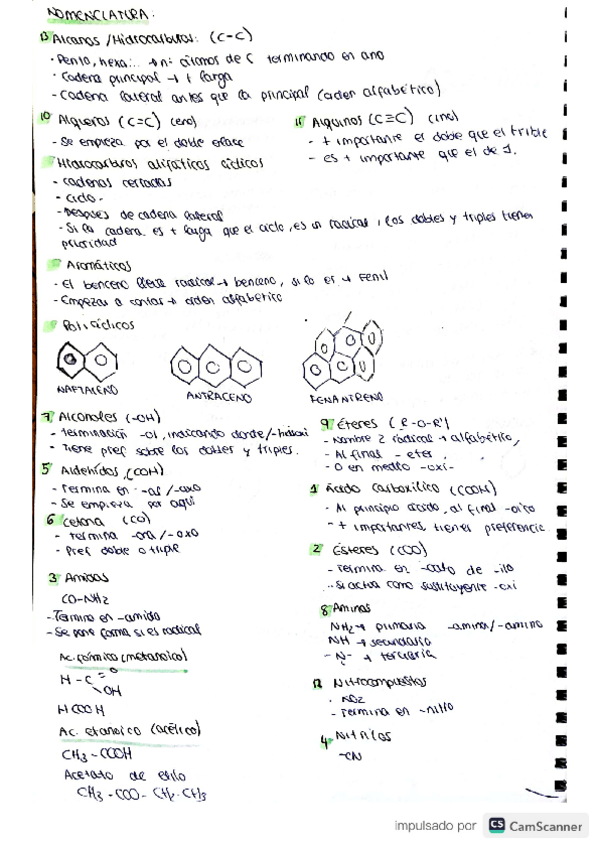 NOMENCLATURA.
13 Alcanos / Hidrocarburos: (C-C)
· Pento, hexa... → nº átomos de C terminando en ano
· Cadena principal → + larga
- Cadena lateral antes que la principal (orden alfabético)
10 Alquenos (C=C) (eno)
- Se empieza por el doble enlace
11 Alquinos (C≡C) (ino)
- + importante el doble que el triple
- es + importante que el de 1.
Hidrocarburos alifáticos cíclicos
- cadenas cerradas
- ciclo-
- Después de cadena lateral
- Si la cadena es + larga que el ciclo, es un radical, los dobles y triples tienen
prioridad
Aromáticos
· El benceno lleva radical → benceno, si lo es → Fenil
- Empezar a contar → orden alfabético
Policíclicos
NAFTALENO
ANTRACENO
FENANTRENO
7 Alcoholes (-OH)
- terminación -ol, indicando donde /-hidroxi
- Tiene pref sobre los dobles y triples.
5 Aldehídos (COH)
- Termina en -al /-oxo
- Se empieza por aquí
6 Cetona (CO)
- termina -ona /-oxo
- Pref doble o triple
3 Amidas
CO-NH2
- Termina en -amida
- Se pone forma si es radical
Ac. fórmico (metanoico)
H - C = O
OH
H COOH
Ac. etanoico (acético)
CH3 - COOH
Acetato de etilo
CH3 - COO - CH2 - CH3
9 Éteres (R-O-R')
- Nombre 2 radical → alfabético,
- Al final - eter.
- O en medio -oxi-
1 Ácido Carboxílico (COOH)
- Al principio ácido, al final -oico
- + importantes, tienen preferencia
2 Ésteres (COO)
- Termina en -oato de -ilo
- Si actúa como sustituyente -oxi
8 Aminas
NH2 → primaria -amina/-amino
NH → secundaria
- N - → terciaria
12 Nitrocompuestos
· NO2
- Termina en -nitro
4 Nitrilos
-CN
impulsado por CS CamScanner